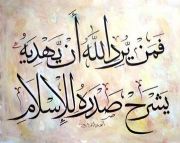 فَمَن يُرِدِ اللَّهُ أَن يَهْدِيَهُ
يَشْرَحْ صَدْرَهُ لِلْإِسْلَامِ